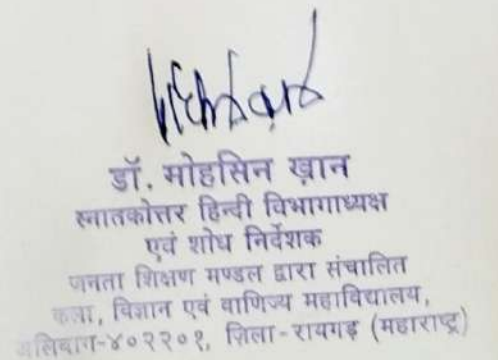 डॉ. मोहसिन ख़ान
स्नातकोत्तर हिन्दी विभागाध्यक्ष
एवं शोध निर्देशक
जनता शिक्षण मण्डल द्वारा संचालित
कला, विज्ञान एवं वाणिज्य महाविद्यालय,
अलिबाग-४०२२०१, ज़िला-रायगड़ (महाराष्ट्र)